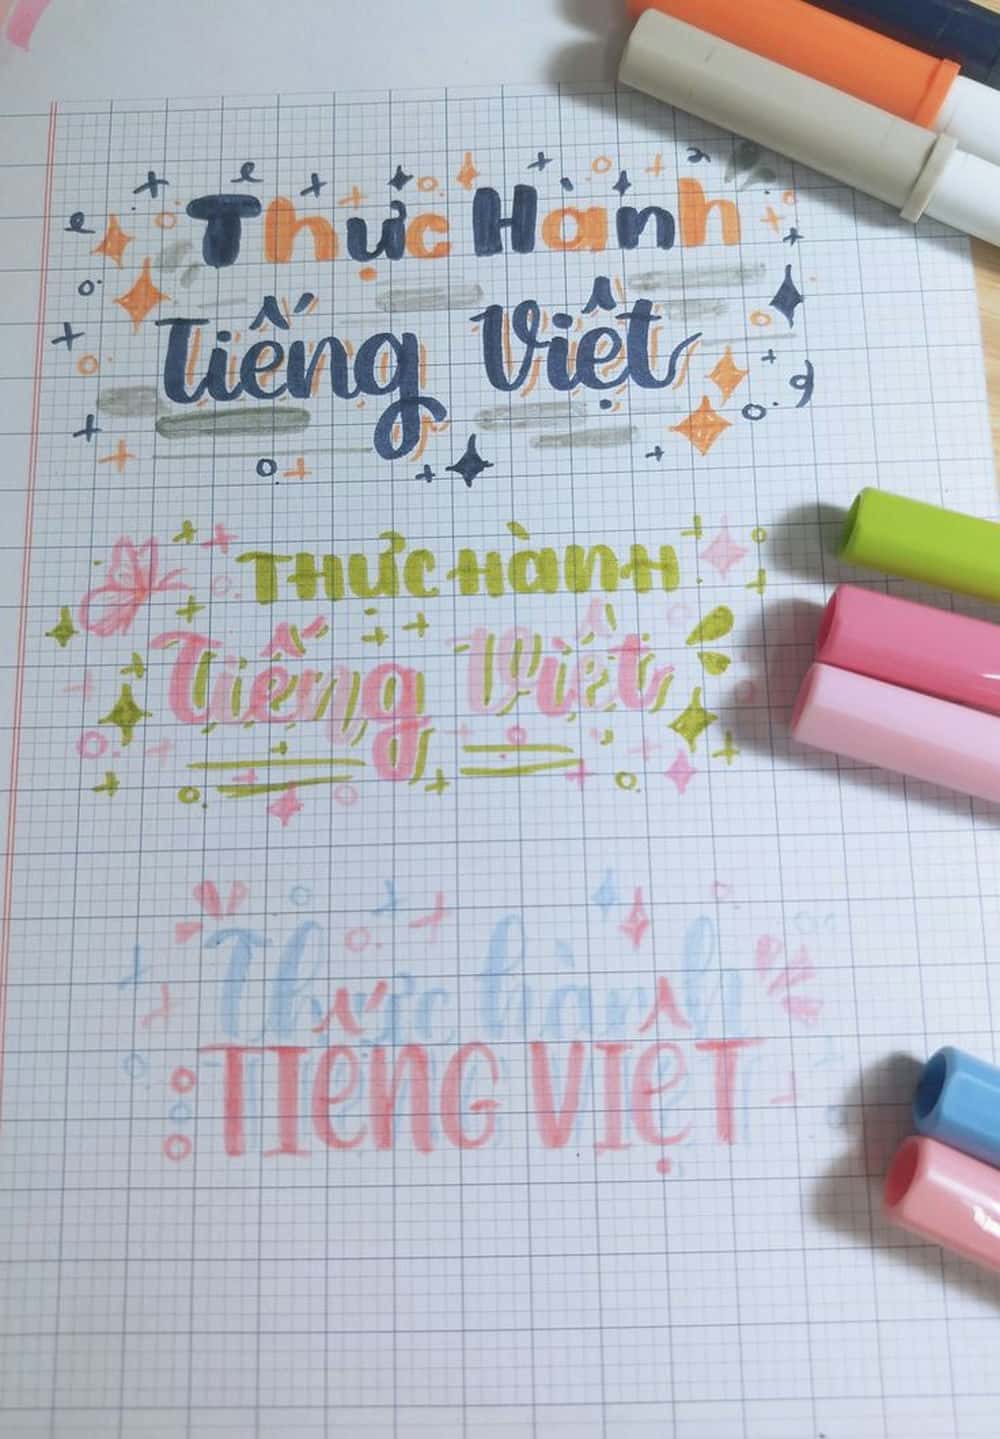 Thực Hành
Tiếng Việt
THỰC HÀNH
Tiếng Việt
Thực hành
TIẾNG VIỆT